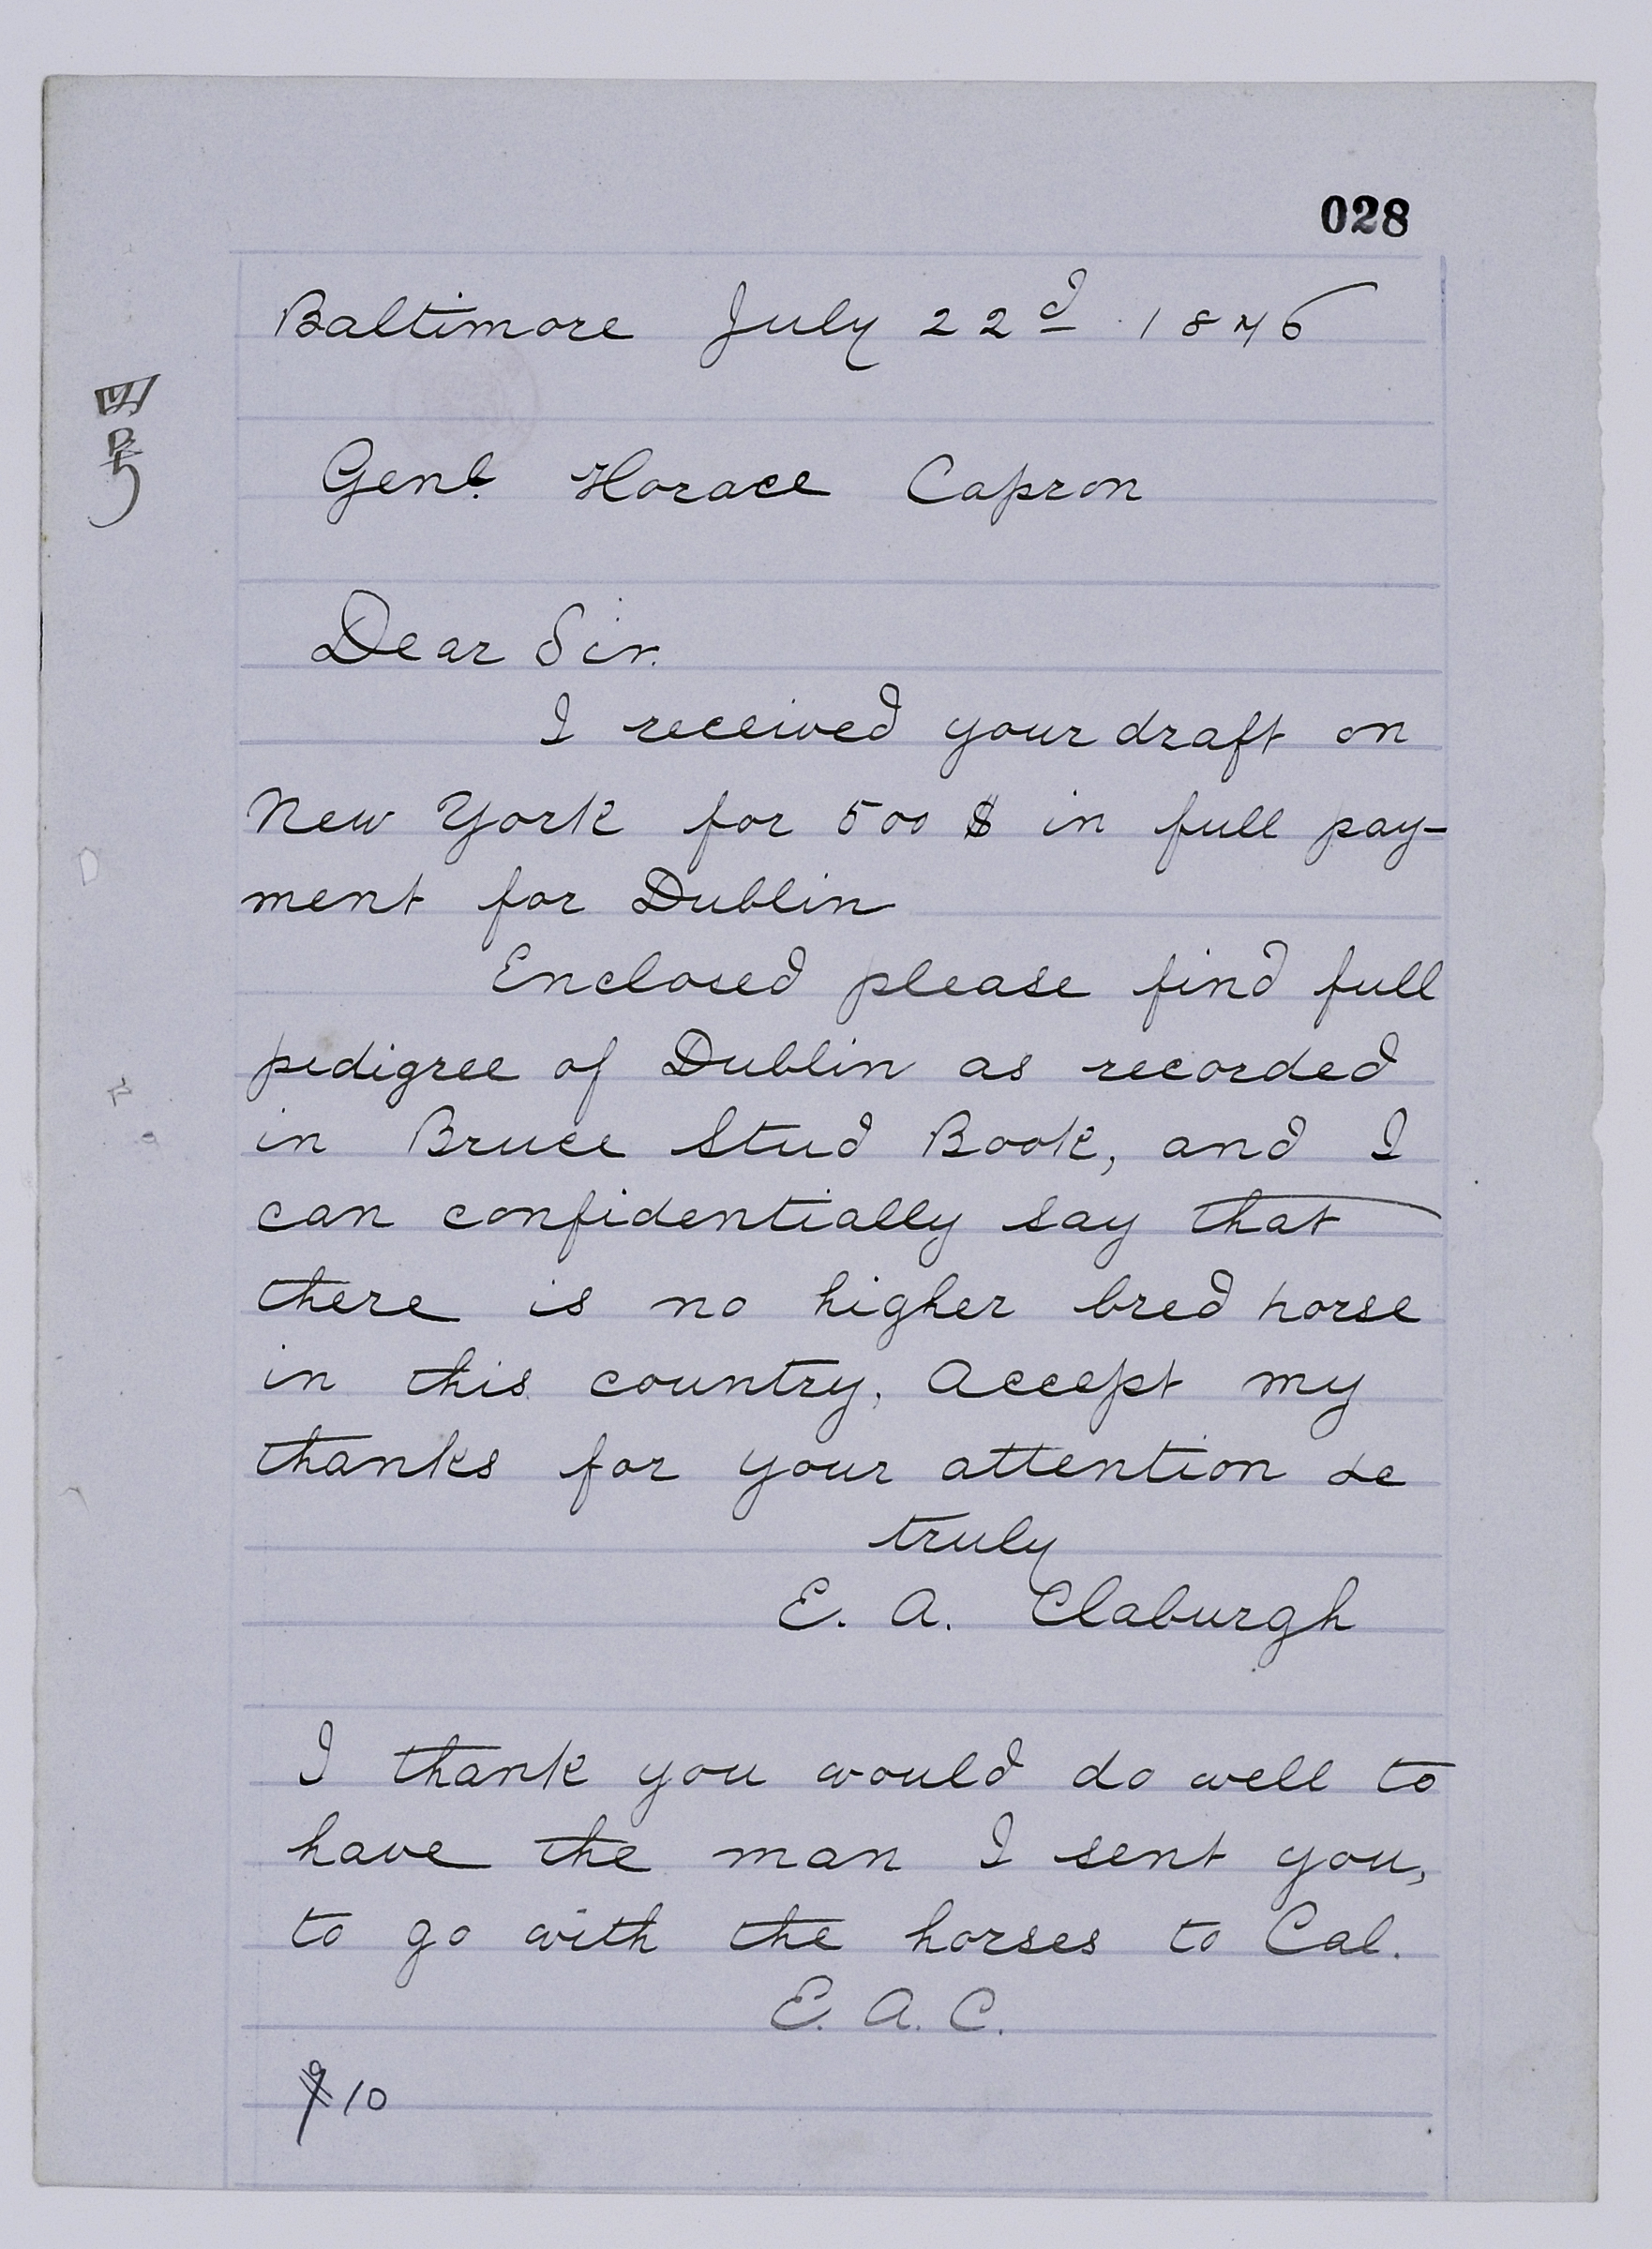 028
Baltimore July 22d 1876
四号
Genl. Horace Capron
Dear Sir.
I received your draft on
New York for 500 $ in full pay-
ment for Dublin
Enclosed please find full
pedigree of Dublin as recorded
in Bruce Stud Book, and I
can confidentially say that
there is no higher bred horse
in this country, Accept my
thanks for your attention &c
truly
E. A. Claburgh
I thank you would do well to
have the man I sent you,
to go with the horses to Cal.
E. A. C.
10